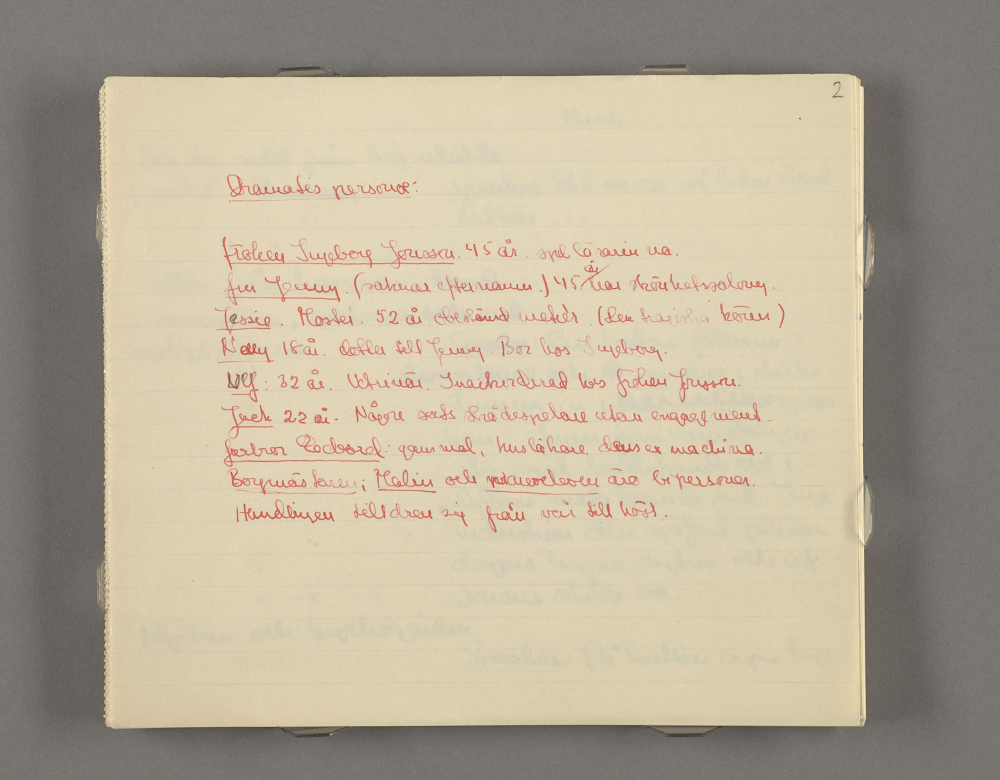 2
Dramatis personæ:
fröken Ingeborg Jonsson. 45 år. spellärarinna.
fru Jenny. (saknar efternamn.) 45 år har skönhetssalong.
Jessie. Moster. 52 år obestämd metier. (Den tragiska kören)
Nelly 18 år. dotter till Jenny. Bor hos Ingeborg.
Ulf: 32 år. Veterinär. Inackorderad hos fröken Jonsson.
Jack 22 år. Någon sorts skådespelare utan engagement
farbror Edvard: gammal, husläkare deus ex machina.
Borgmästaren; Malin och är bipersoner.
Handlingen tilldrar sig från vår till höst.